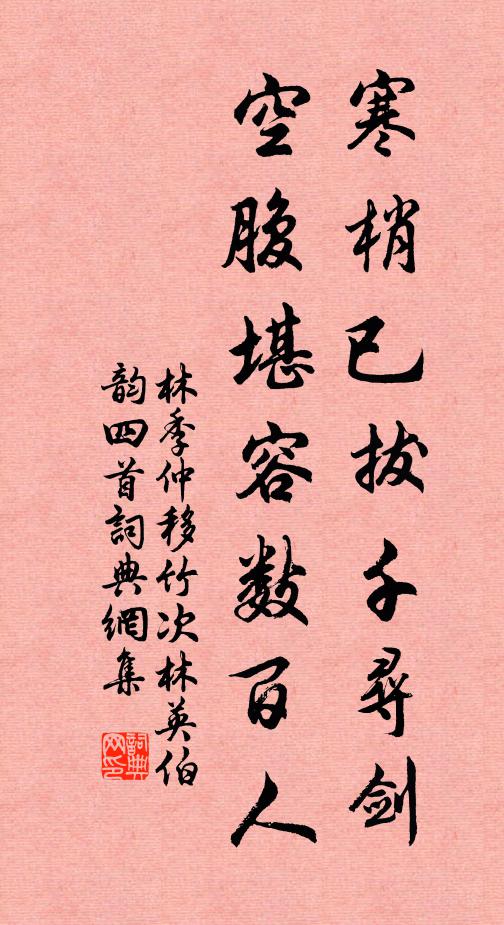 寒梢已拔千尋劍
空腹堪容数百人
林季仲移竹次林英伯
韵四首詞典網集
詞典网印